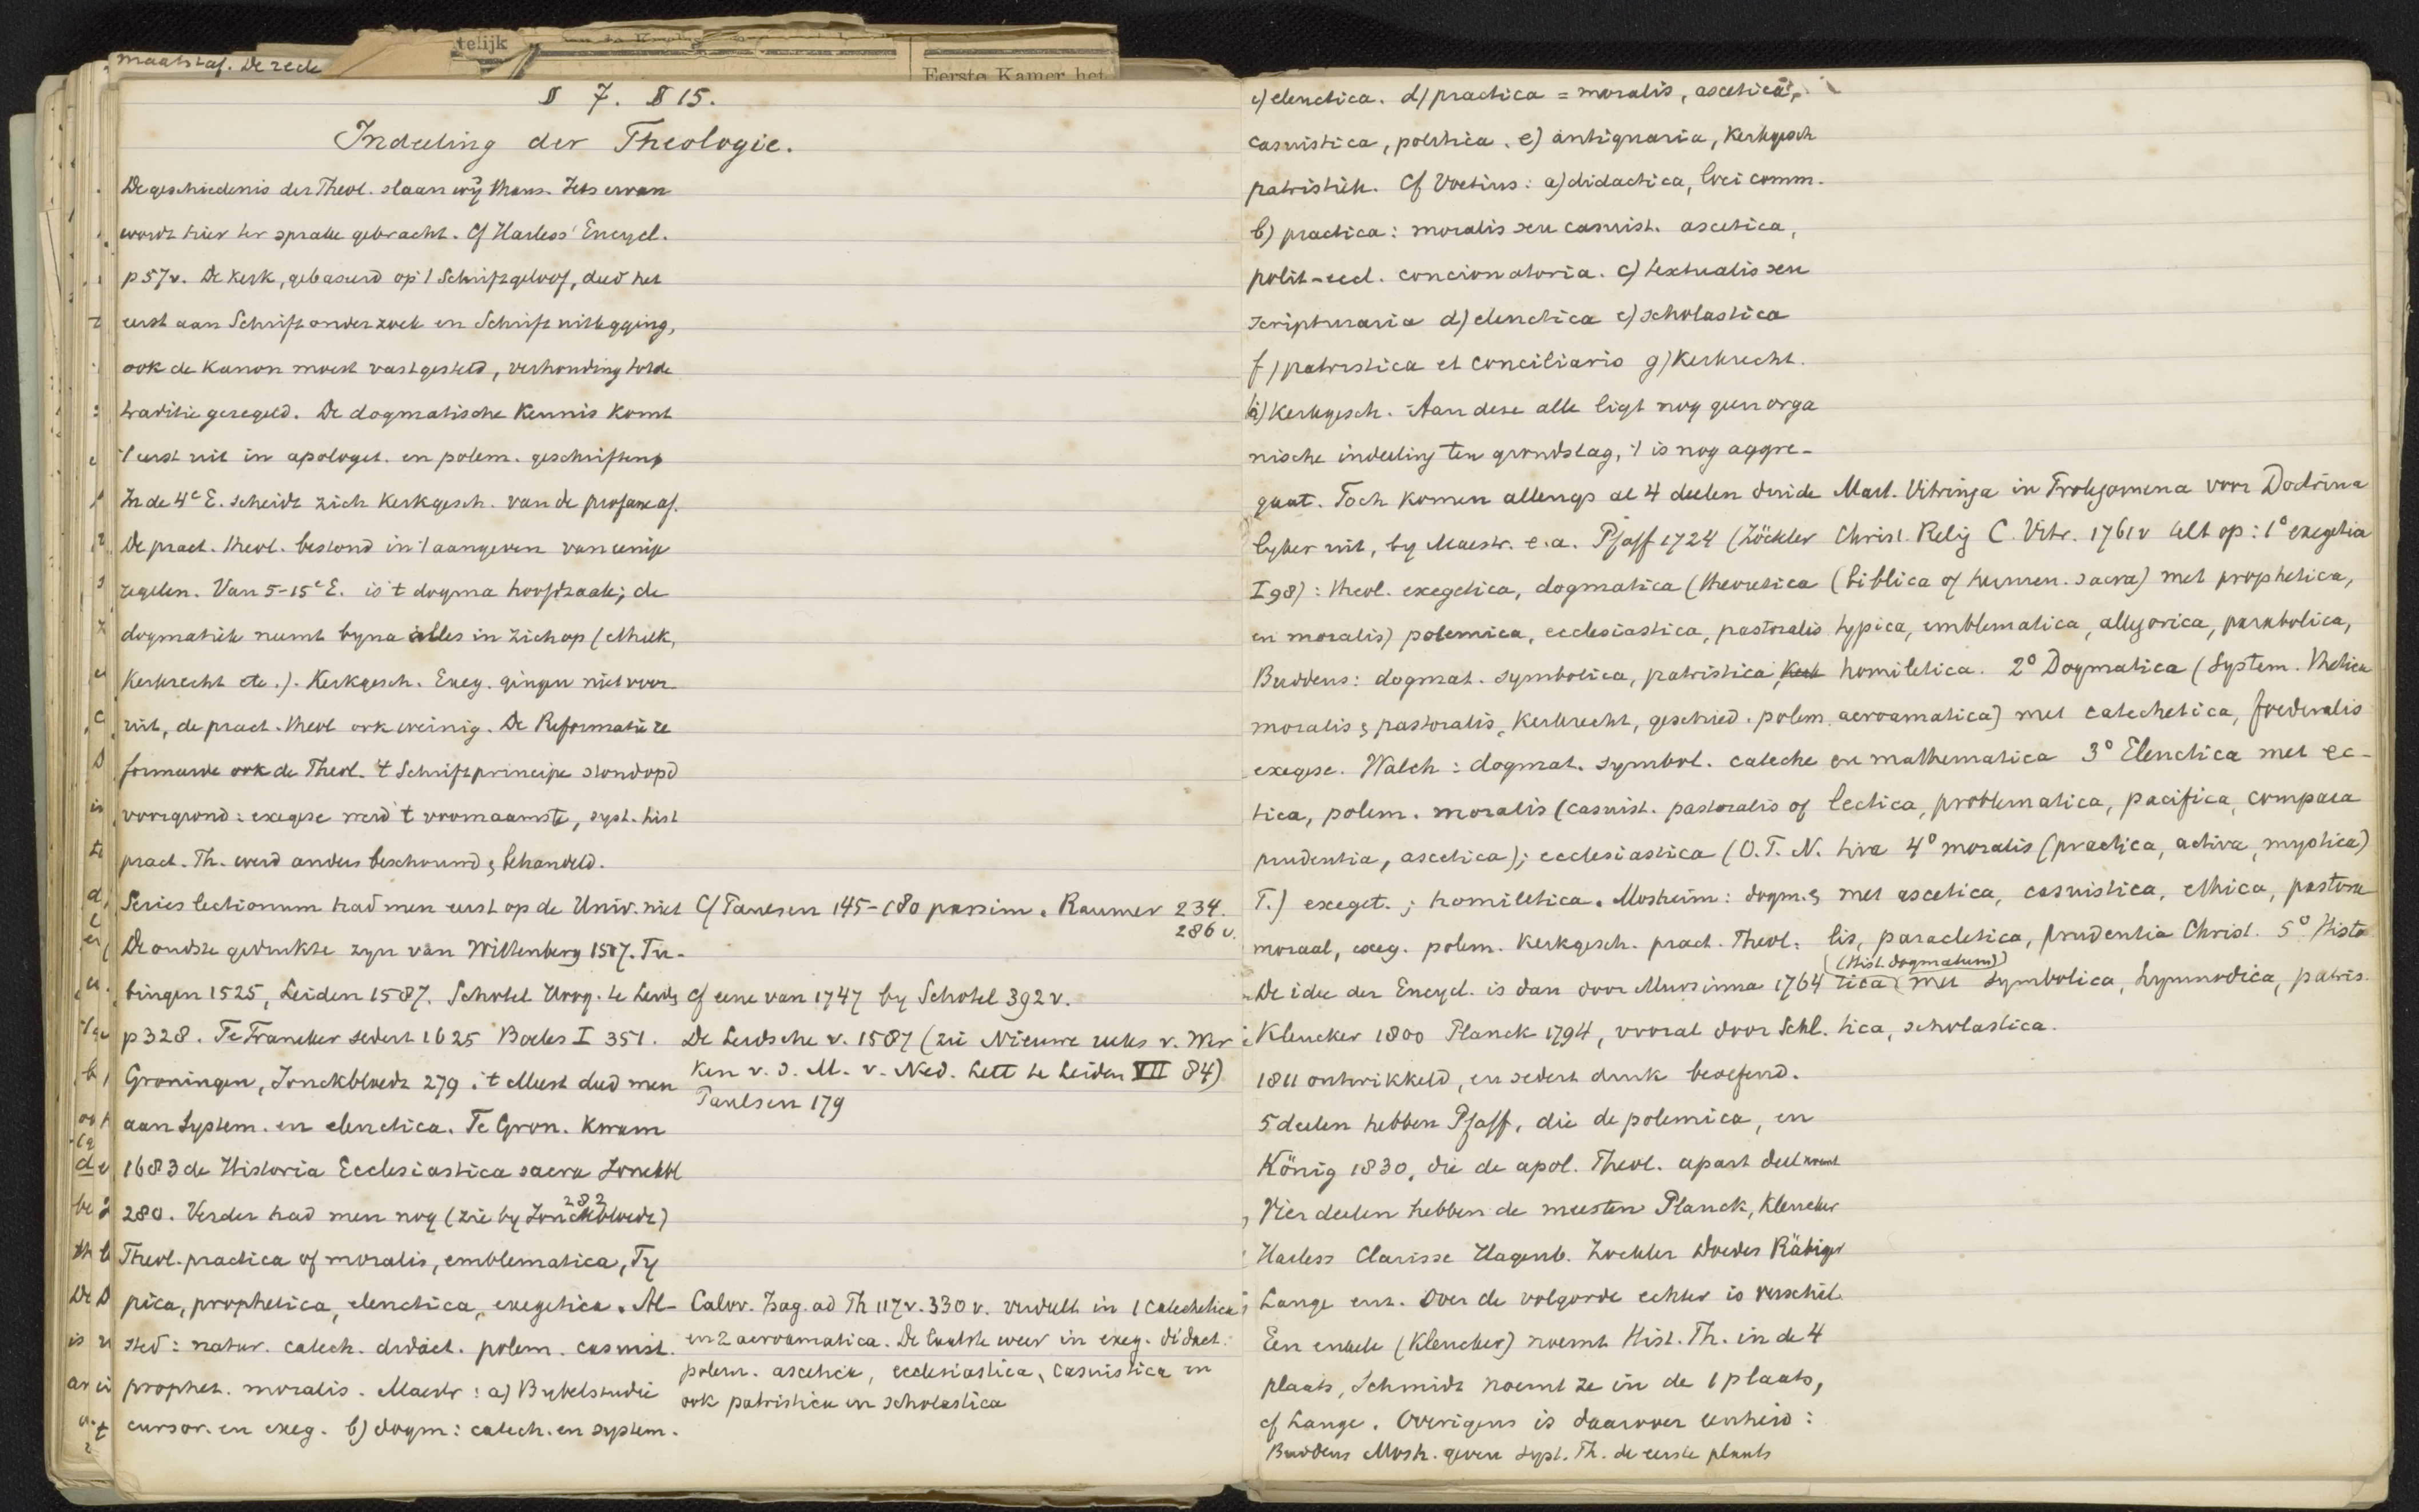 telijk
Eerste Kamer het
maatstaf. De rede
§ 7. § 15.
Indeeling der Theologie.
De geschiedenis der Theol. slaan wij thans. Iets ervan
wordt hier ter sprake gebracht. Cf Harless' Encycl.
p 57v. De kerk, gebaseerd op 't Schriftgeloof, deed het
eerst aan Schriftonderzoek en Schriftuitlegging,
ook de Kanon moest vastgesteld, verhouding tot de
traditie geregeld. De dogmatische Kennis komt
't eerst uit in apologet. en polem. geschriften
In de 4e E. scheidt zich Kerkgesch. van de profane af.
De pract. theol. bestond in 't aangeven van eenige
regelen. Van 5-15e E. is 't dogma hoofdzaak; de
dogmatiek neemt byna alles in zich op (ethiek,
Kerkrecht etc.). Kerkgesch. Exeg. gingen niet voor
uit, de pract. theol ook weinig. De Reformatie re
formeerde ook de Theol. 't Schriftprincipe stond op d
voorgrond: exegese werd 't voornaamste, syst. hist
pract. Th. werd anders beschouwd & behandeld.
Series lectionum had men eerst op de Univ. niet
De oudste gedrukte zyn van Wittenberg 1507. Tu-
bingen 1525, Leiden 1587. Schotel Acad. te Leid
p 328. Te Franeker sedert 1625 Boeles I 351.
Groningen, Jonckbloedt 279. 't Meest deed men
aan System. en elenctica. Te Gron. kwam
1683 de Historia Ecclesiastica sacra Jonckbl
280. Verder had men nog (zie by Jonckbloedt 282)
Theol. practica of moralis, emblematica, Ty
pica, prophetica, elenctica, exegetica. Al-
sted: natur. catech. didact. polem. casuist.
prophet. moralis. Maestr: a) Bybelstudie
cursor. en exeg. b) dogm: catech. en system.
Cf Paulsen 145-180 passim. Raumer 234.
286 v.
Cf eene van 1747 by Schotel 392v.
De Leidsche v. 1587 (zie Nieuwe reeks v. Wer
ken v. d. M. v. Ned. Lett te Leiden VII 84)
Paulsen 179
Calov. Isag. ad Th 117v. 330v. verdeelt in 1 catechetica
en 2 acroamatica. De laatste weer in exeg. didact.
polem. ascetica, ecclesiastica, casuistica en
ook patristica en scholastica
c) elenctica. d) practica = moralis, ascetica,
casuistica, politica. e) antiquaria, Kerkgesch
patristiek. Cf Voetius: a) didactica, loci comm.
b) practica: moralis seu casuist. ascetica,
polit-eccl. concionatoria. c) textualis seu
scripturaria d) elenctica e) scholastica
f) patristica et conciliaria g) Kerkrecht.
h) Kerkgesch. Aan deze alle ligt nog geen orga
nische indeeling ten grondslag, 't is nog aggre-
gaat. Toch komen allengs al 4 deelen duide
lyker uit, by Maestr. e.a. Pfaff 1724 (Zöckler
I 98): theol. exegetica, dogmatica (theoretica
en moralis) polemica, ecclesiastica, pastoralis
Buddeus: dogmat. symbolica, patristica,
moralis & pastoralis, Kerkrecht, geschied. polem.
exegese. Walch: dogmat. symbol. cateche
tica, polem. moralis (casuist. pastoralis of
prudentia, ascetica); ecclesiastica (O.T. N.
T.) exeget.; homiletica. Mosheim: dogm. &
moraal, exeg. polem. Kerkgesch. pract. Theol:
De idee der Encycl. is dan door Mursinna 1764
Kleucker 1800 Planck 1794, vooral door Schl.
1811 ontwikkeld, en sedert druk beoefend.
5 deelen hebben Pfaff, die de polemica, en
König 1830, die de apol. Theol. apart deel noemt
Vier deelen hebben de meesten Planck, Kleucker
Harless Clarisse Hagenb. Zöckler Doedes Räbiger
Lange enz. Over de volgorde echter is verschil.
Een enkele (Kleucker) noemt Hist. Th. in de 4
plaats, Schmidt noemt ze in de 1 plaats,
cf Lange. Overigens is daarover eenheid:
Buddeus Mosh. geven syst. Th. de eerste plaats
Mart. Vitringa in Prolegomena voor Doctrina
Christ. Relig C. Vitr. 1761 v telt op: 1° exegetica
(biblica of hermen. sacra) met prophetica,
typica, emblematica, allegorica, parabolica,
homiletica. 2° Dogmatica (System. thetica
acroamatica) met catechetica, foederalis
en mathematica 3° Elenctica met ec-
lectica, problematica, pacifica, compara
tiva 4° moralis (practica, activa, mystica)
met ascetica, casuistica, ethica, pastora
lis, paracletica, prudentia Christ. 5° Histo
(Hist. dogmatum)
rica met symbolica, hymnodica, patris.
tica, scholastica.